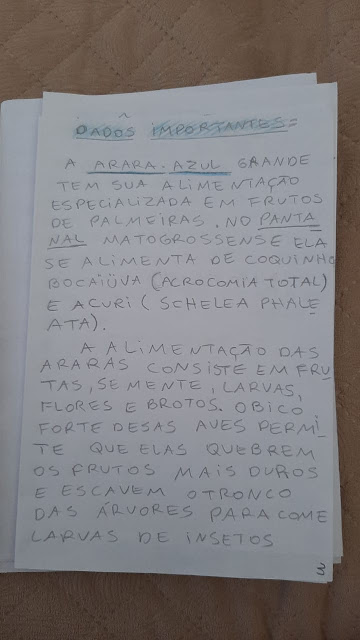 DADÔS IMPORTANTES=
A ARARA-AZUL GRANDE
TEM SUA ALIMENTAÇÃO
ESPECIALIZADA EM FRUTOS
DE PALMEIRAS. NO PANTA
NAL MATOGROSSENSE ELA
SE ALIMENTA DE COQUINHO
BOCAIÜVA (ACROCOMIA TOTAL)
E ACURI ( SCHELEA PHALE
ATA).
A ALIMENTAÇÃO DAS
ARARAS CONSISTE EM FRU
TAS, SEMENTE, LARVAS,
FLORES E BROTOS. O BICO
FORTE DESAS AVES PERMI-
TE QUE ELAS QUEBREM
OS FRUTOS MAIS DUROS
E ESCAVEM O TRONCO
DAS ÁRVORES PARA COME
LARVAS DE INSETOS
3